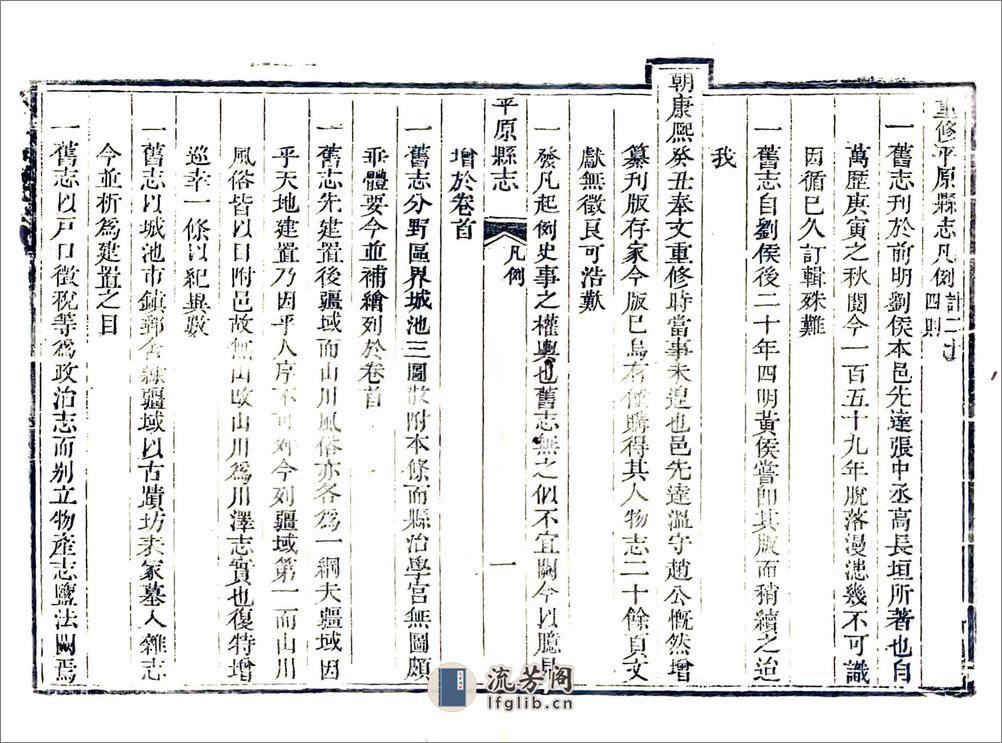 重修平原縣志凡例計二十四則
一舊志刊於前明劉侯本邑先達張中丞高長垣所著也自
萬歷庚寅之秋閱今一百五十九年脫落漫漶幾不可識
因循已久訂輯殊難
一舊志自劉侯後二十年四明黃侯嘗即其版而稍續之迨
我
朝康熙癸丑奉文重修時當事未遑也邑先達溫守趙公慨然增
纂刊版存家今版已烏有僅購得其人物志二十餘頁文
獻無徵良可浩歎
一發凡起例史事之權輿也舊志無之似不宜闕今以臆見
平原縣志 凡例 一
增於卷首
一舊志分野區界城池三圖散附本條而縣治學宮無圖頗
乖體要今並補繪列於卷首
一舊志先建置後疆域而山川風俗亦各為一綱夫疆域因
乎天地建置乃因乎人序不可紊今列疆域第一而山川
風俗皆以目附邑故無山改山川為川澤志實也復特增
巡幸一條以紀異數
一舊志以城池市鎮郵舍隸疆域以古蹟坊表冢墓入雜志
今並析為建置之目
一舊志以戶口徵稅等為政治志而別立物產志鹽法闕焉
流芳閣
lfglib.cn